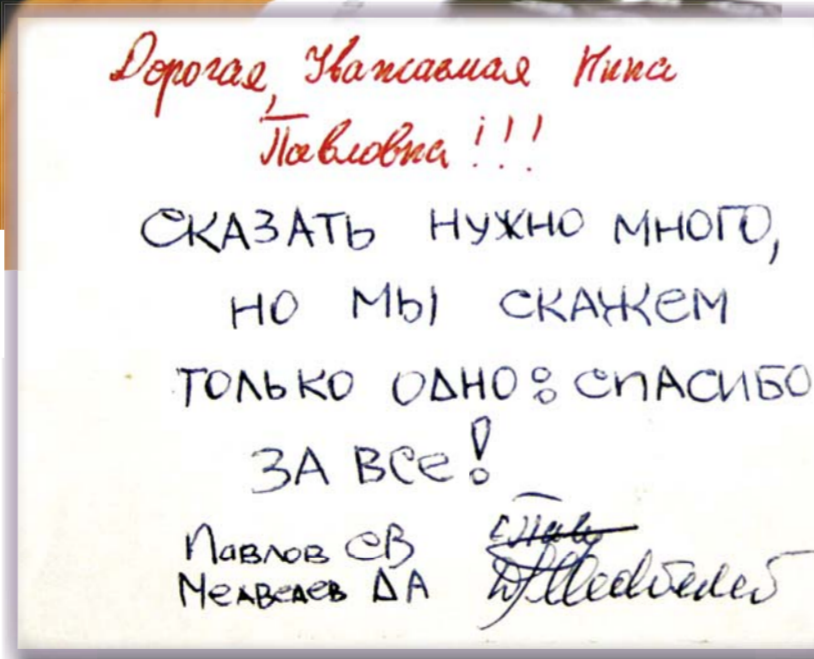 Дорогая, Уважаемая Нина
Павловна!!!
СКАЗАТЬ НУЖНО МНОГО,
НО МЫ СКАЖЕМ
ТОЛЬКО ОДНО: СПАСИБО
ЗА ВСЕ!
ПАВЛОВ СВ
МЕДВЕДЕВ ДА